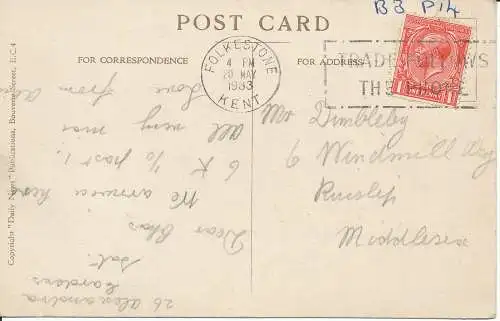 B3 P14
POST CARD
FOR CORRESPONDENCE
FOR ADDRESS
FOLKESTONE
4 PM
20 MAY
1933
KENT
TRADE FOLLOWS
THE PHONE
Copyright "Daily News" Publications, Bouverie Street, E.C.4
26 Alexandra
Gardens
Sat.
Dear Chas
We arrived here
6 to past 1.
All very nice
Love from all
Mr Dimbleby
6 Windmill Way
Ruislip
Middlesex